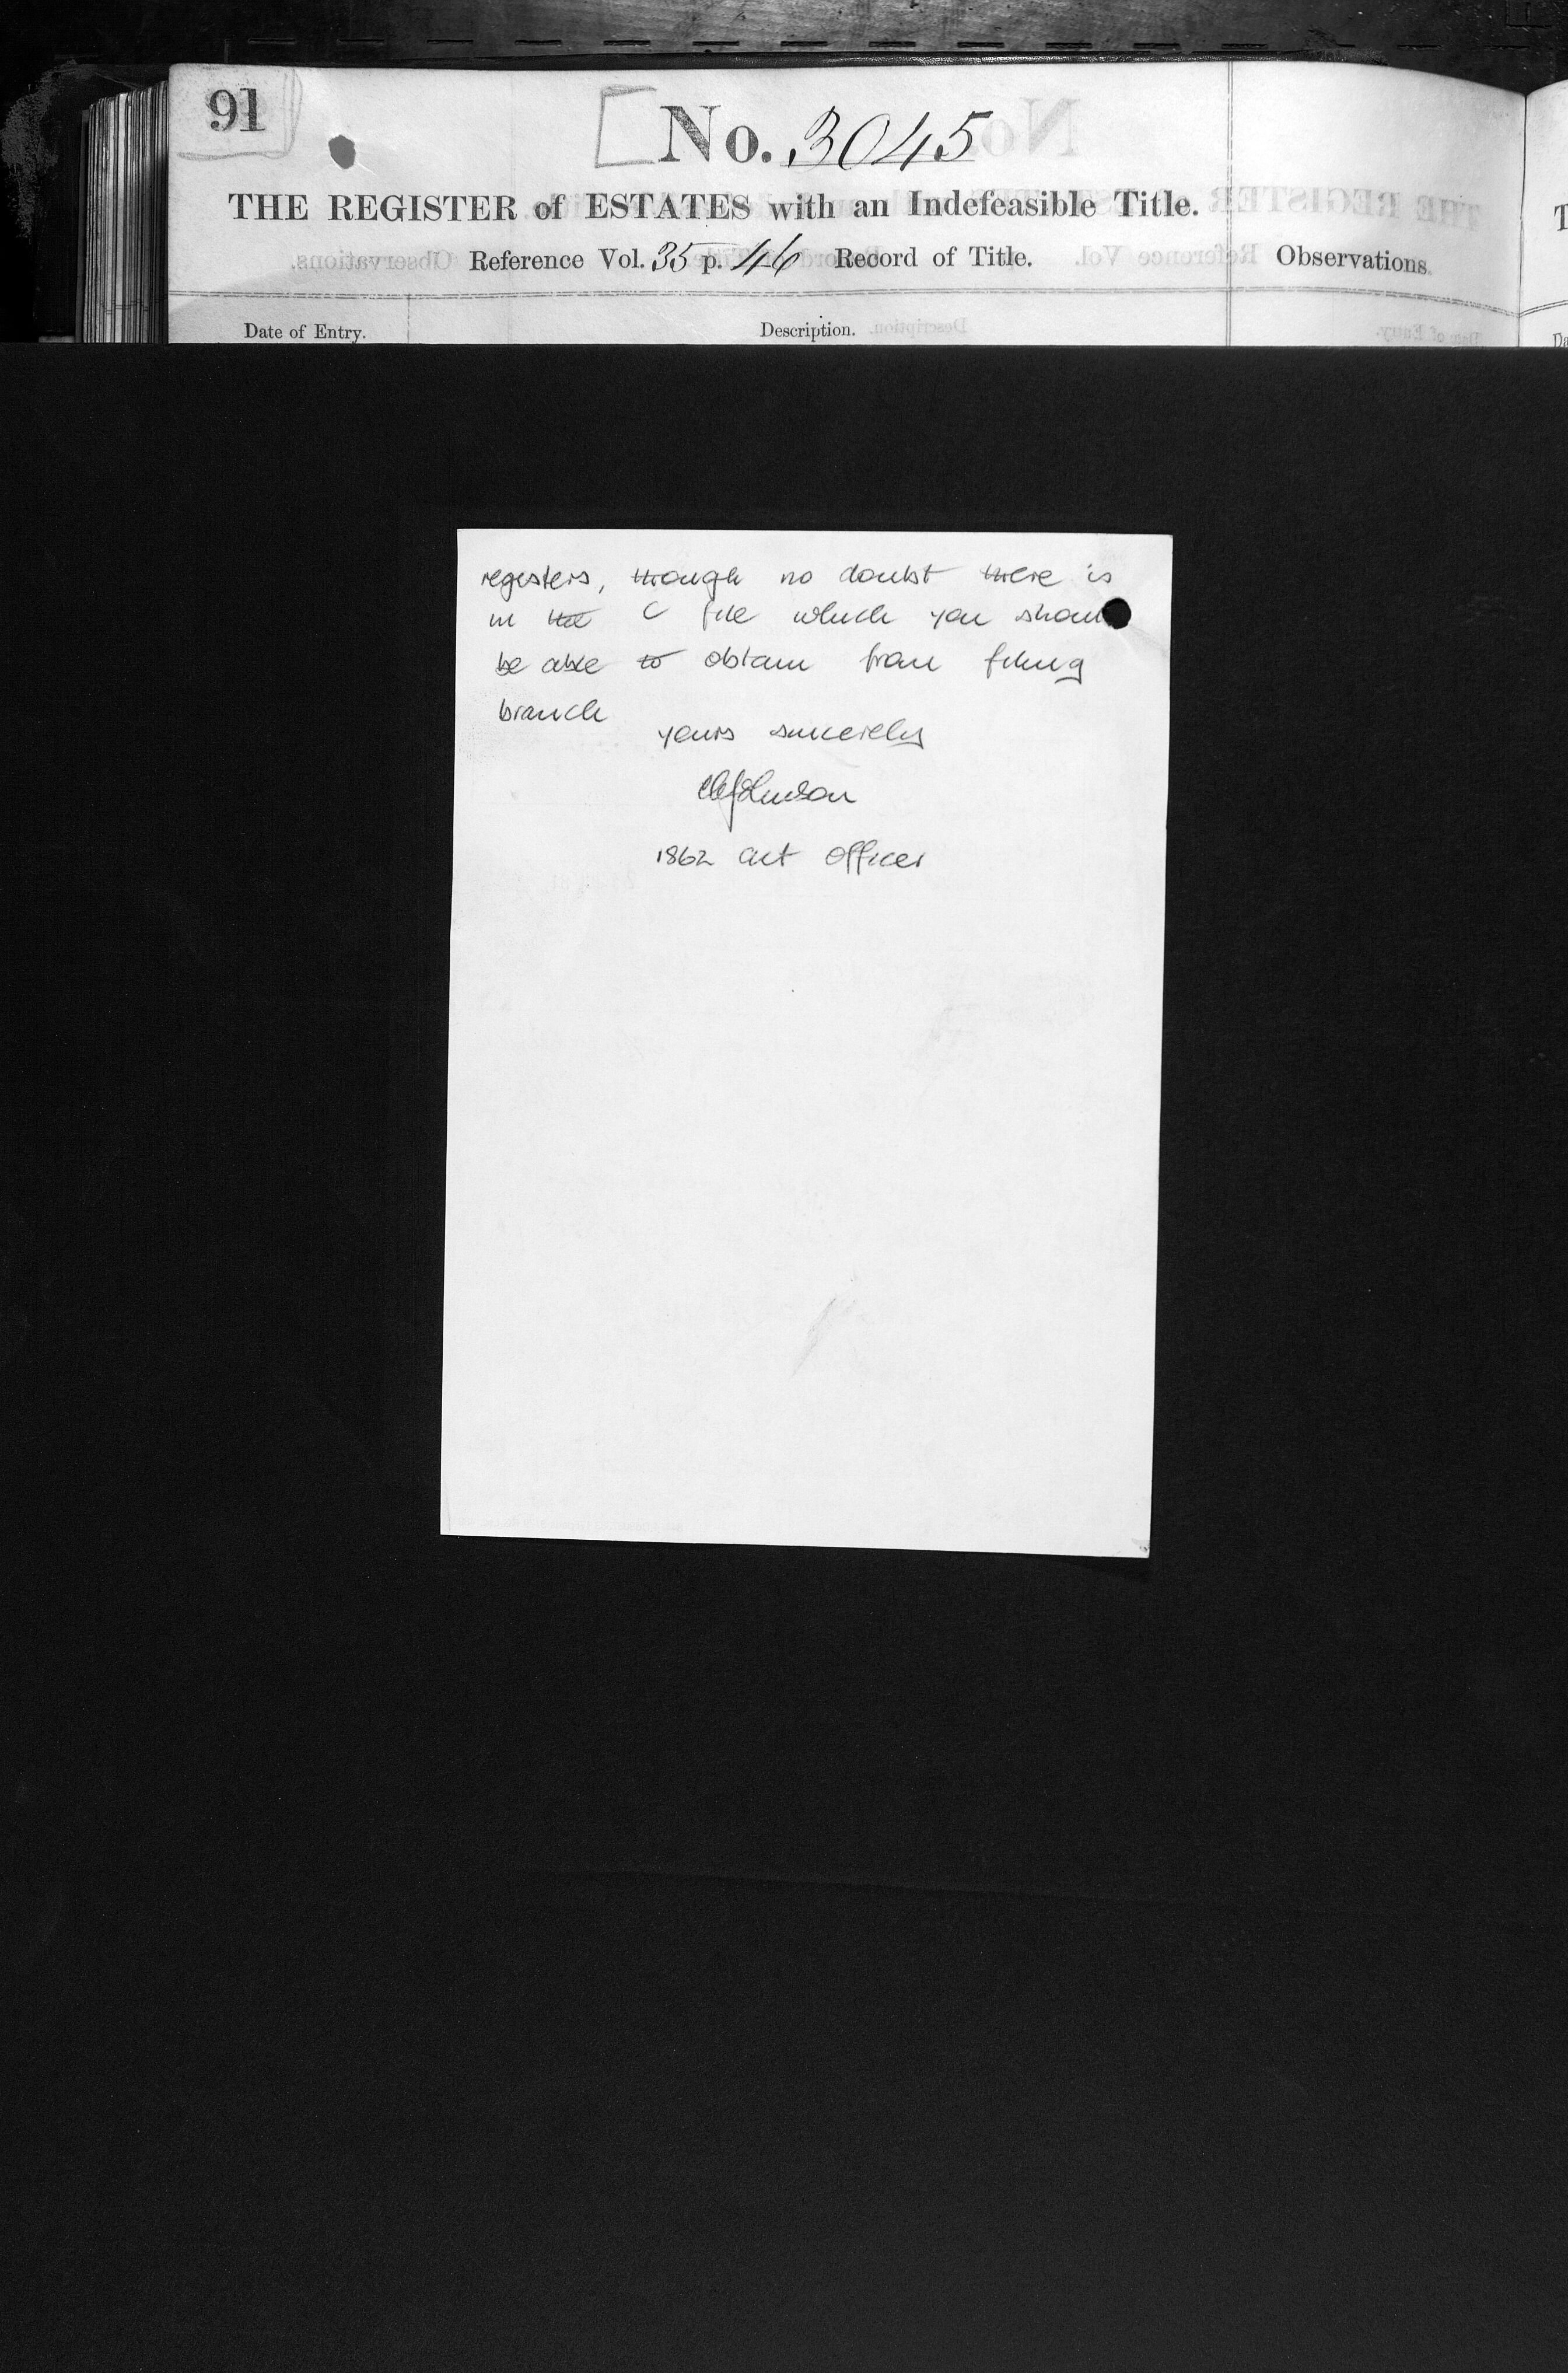 91
No. 3045
THE REGISTER of ESTATES with an Indefeasible Title.
Reference Vol. 35 p. 46 Record of Title.
Observations.
Date of Entry.
Description.
registers, though no doubt there is
in the C file which you shoul
be able to obtain from filing
branch
yours sincerely
1862 act officer